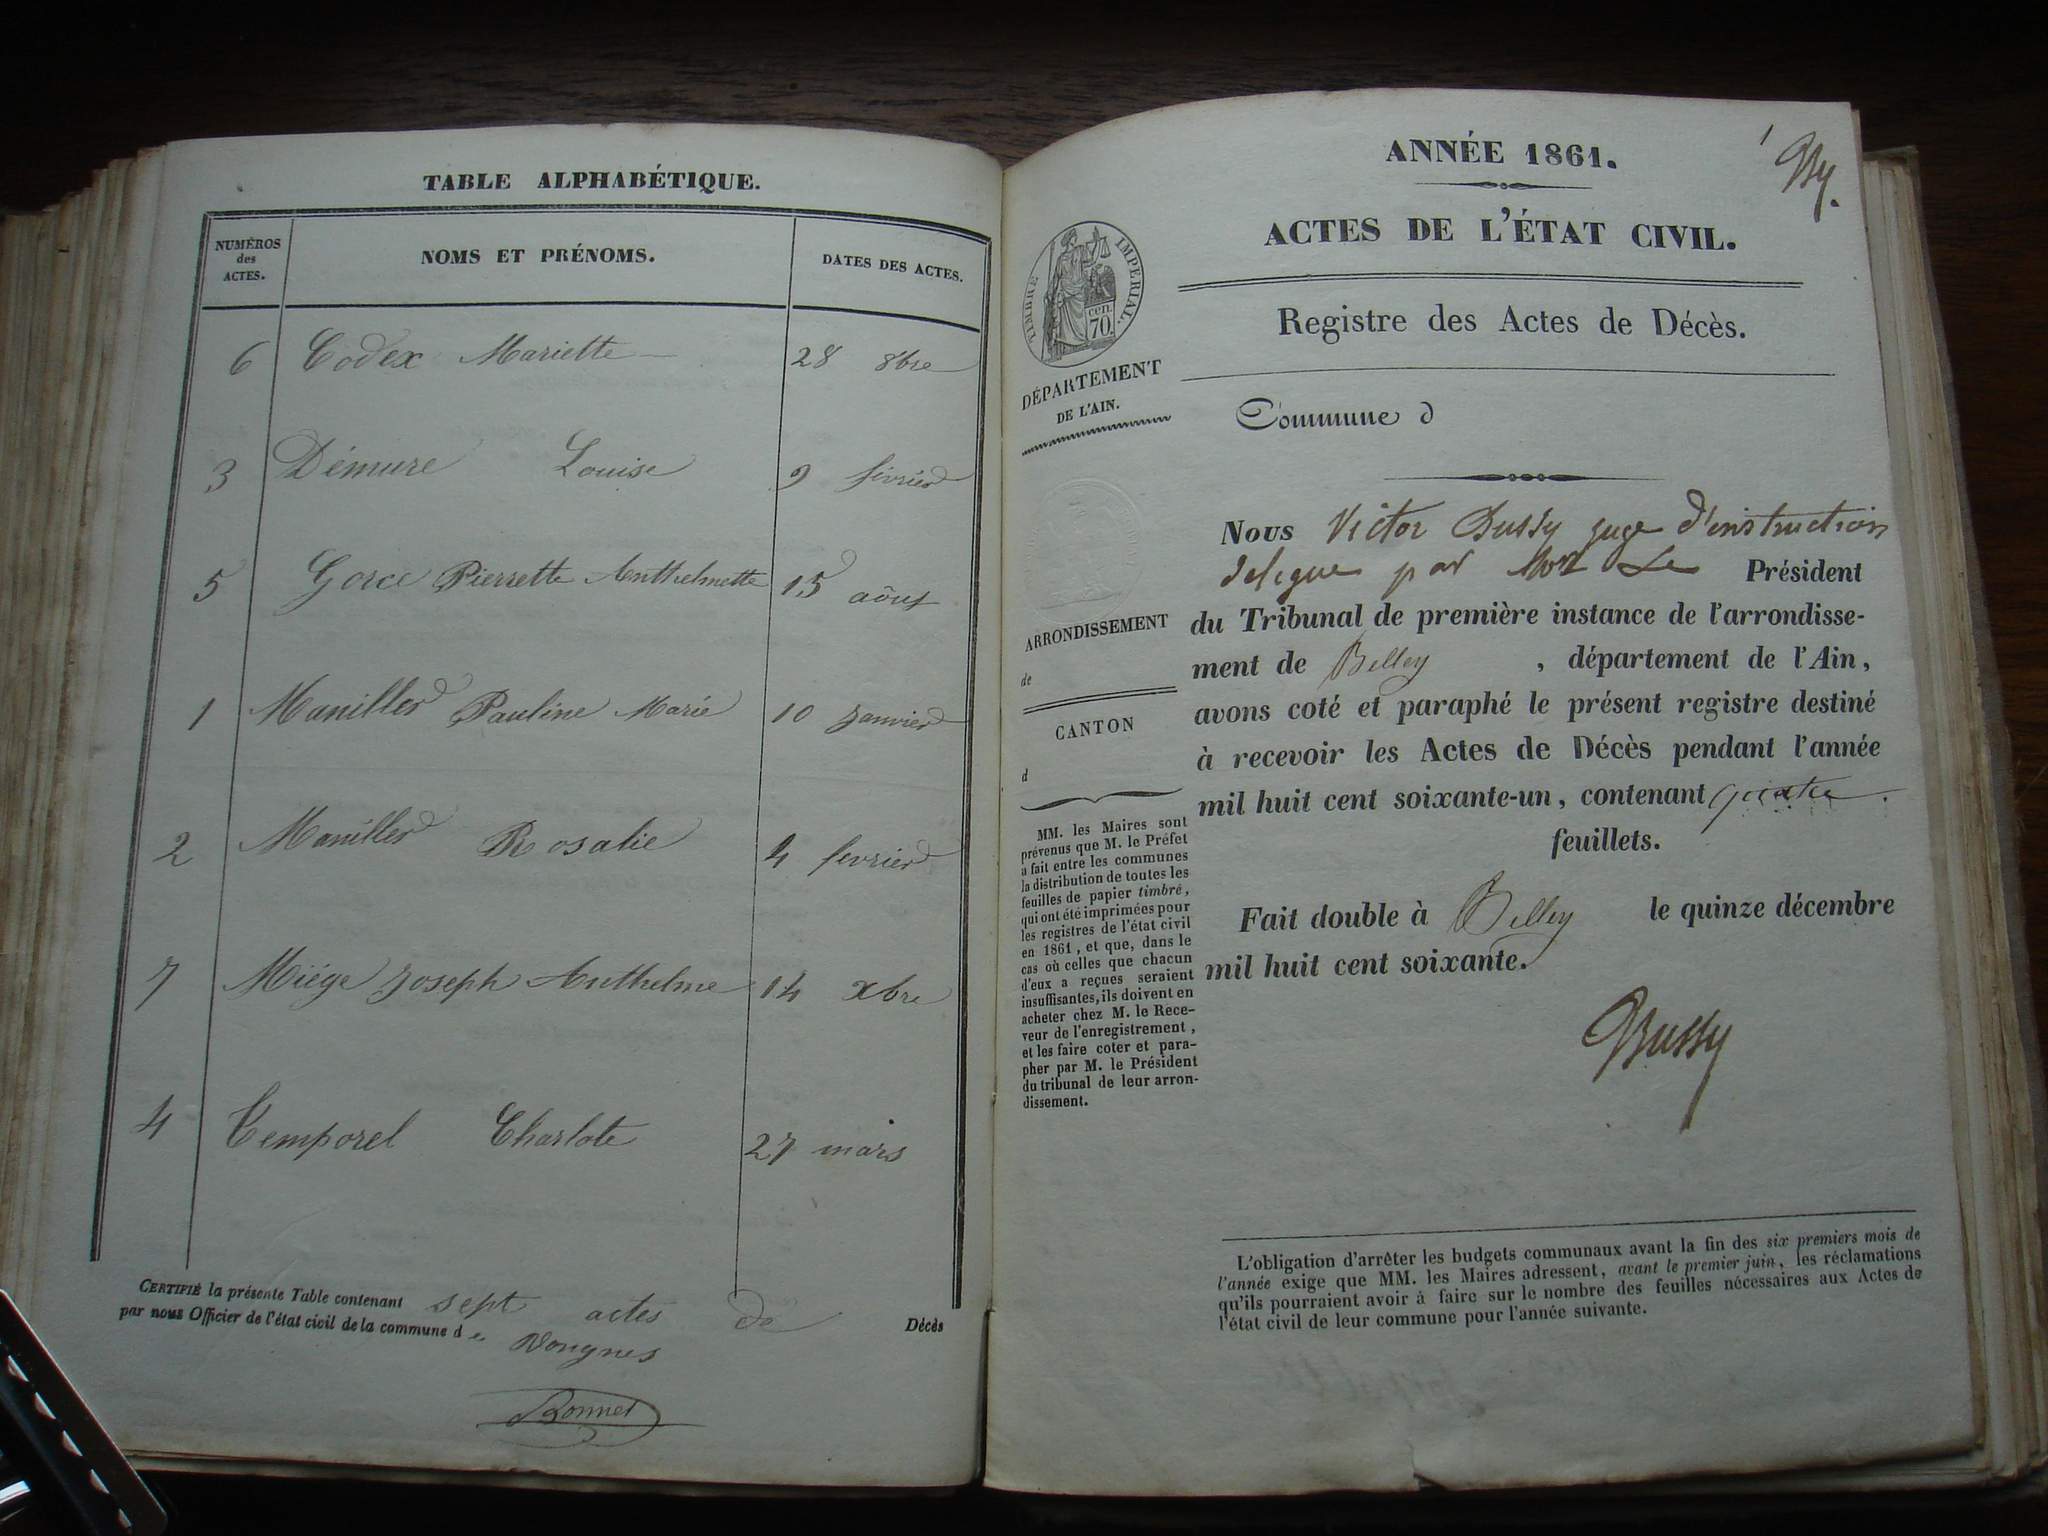 TABLE ALPHABÉTIQUE.
NUMÉROS des ACTES.
NOMS ET PRÉNOMS.
DATES DES ACTES.
6 Codex Mariette 28 8bre
3 Démure Louise 9 février
5 Gorce Pierrette Anthelmette 15 août
1 Maniller Pauline Marie 10 Janvier
2 Maniller Rosalie 4 fevrier
7 Miége Joseph Anthelme 14 xbre
4 Temporel Charlote 27 mars
CERTIFIÉ la présente Table contenant sept actes de Décès
par nous Officier de l'état civil de la commune de Vongnes
Bonnet
ANNÉE 1861.
1
By.
ACTES DE L'ÉTAT CIVIL.
Registre des Actes de Décès.
TIMBRE IMPÉRIAL.
cen. 70.
DÉPARTEMENT
DE L'AIN.
ARRONDISSEMENT
de
CANTON
d
MM. les Maires sont
prévenus que M. le Préfet
a fait entre les communes
la distribution de toutes les
feuilles de papier timbré,
qui ont été imprimées pour
les registres de l'état civil
en 1861, et que, dans le
cas où celles que chacun
d'eux a reçues seraient
insuffisantes, ils doivent en
acheter chez M. le Rece-
veur de l'enregistrement,
et les faire coter et para-
pher par M. le Président
du tribunal de leur arron-
dissement.
Commune d
Nous Victor Bussy juge d'instruction
delegue par Mr Le Président
du Tribunal de première instance de l'arrondisse-
ment de Belley, département de l'Ain,
avons coté et paraphé le présent registre destiné
à recevoir les Actes de Décès pendant l'année
mil huit cent soixante-un, contenant quatre
feuillets.
Fait double à Belley le quinze décembre
mil huit cent soixante.
Bussy
L'obligation d'arrêter les budgets communaux avant la fin des six premiers mois de
l'année exige que MM. les Maires adressent, avant le premier juin, les réclamations
qu'ils pourraient avoir à faire sur le nombre des feuilles nécessaires aux Actes de
l'état civil de leur commune pour l'année suivante.